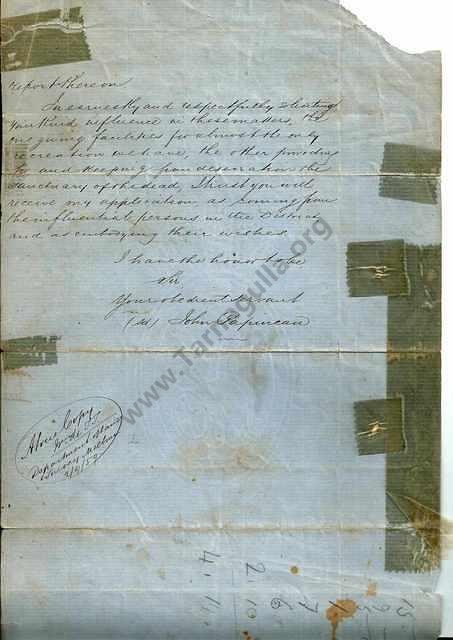 report thereon
Earnestly and respectfully soliciting
your kind influence in these matters, the
one giving facilities for almost the only
recreation we have, the other providing
for and keeping from desecration the
Sanctuary of the dead, I trust you will
receive my application as coming from
the influential persons in the District
and as embodying their wishes.
I have the honor to be
Sir
Your obedient servant
(Sd) John
A true Copy
Department
2.10
4.
6
7
www.Tarnagulla.org